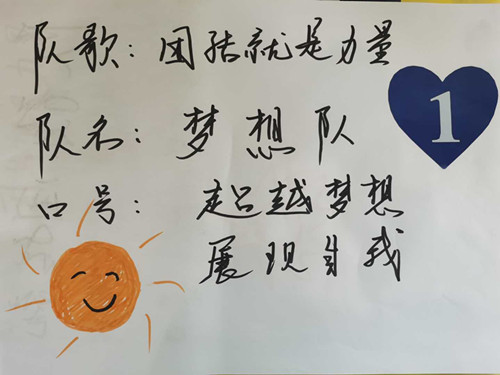 队歌：团结就是力量
1
队名：梦想队
口号：超越梦想
展现自我